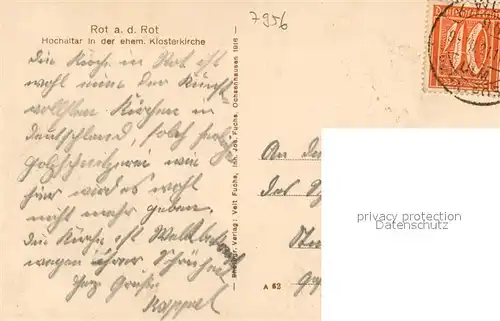 7956
Rot a. d. Rot
Hochaltar in der ehem. Klosterkirche
Die Kirche in Rot ist
wohl eine der kunst-
vollsten Kirchen in
Deutschland, solch
Holzschnitzerei wie
hier wird es wohl
nicht mehr geben.
Die Kirche ist
wegen ihrer Schönheit
Herz. Grüße
Kappel
Verlag: Veit Fuchs, Inh. Jos. Fuchs, Ochsenhausen 1916
A 62
An
privacy protection
Datenschutz